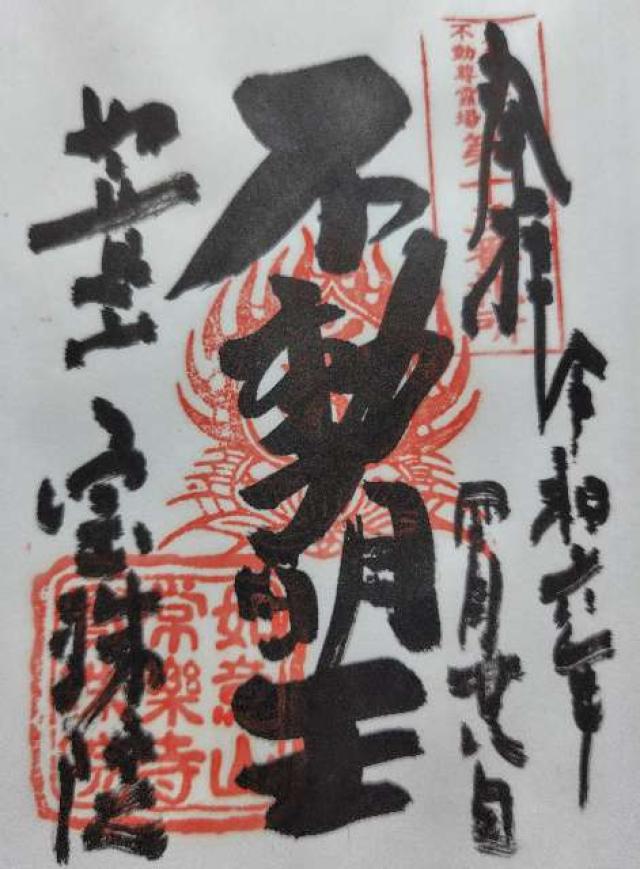 奉拝
令和六年
四月廿八日
不動明王
如意山
宝珠院
不動尊霊場
如意山
常樂寺